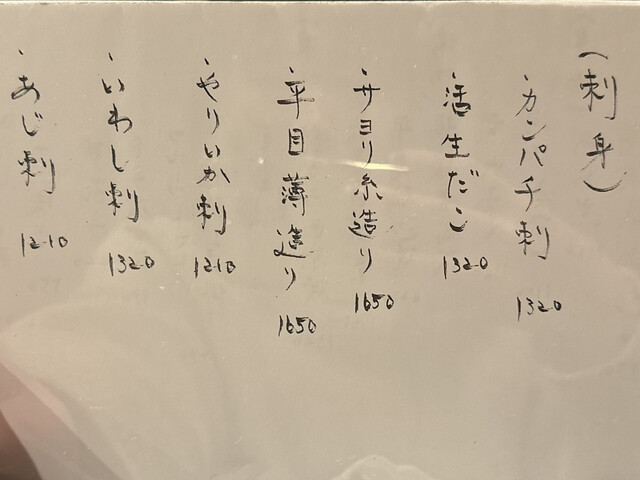 (刺身)
・カンパチ刺 1320
・活生だこ 1320
・サヨリ糸造り 1650
・平目薄造り 1650
・やりいか刺 1210
・いわし刺 1320
・あじ刺 1210